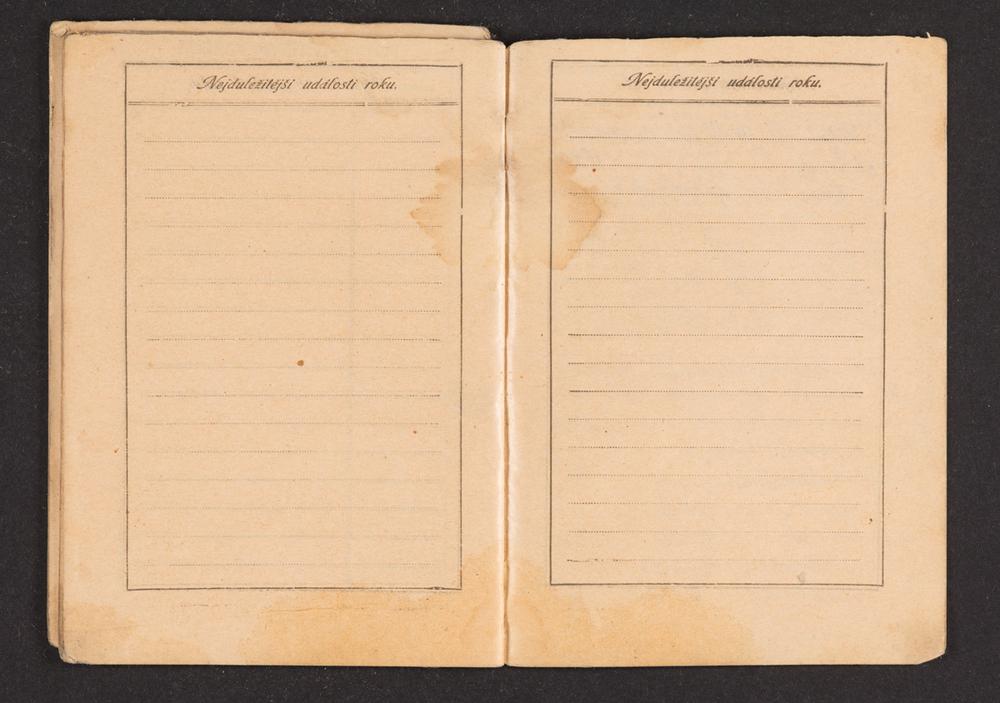 Nejduležitější události roku.
Nejduležitější události roku.